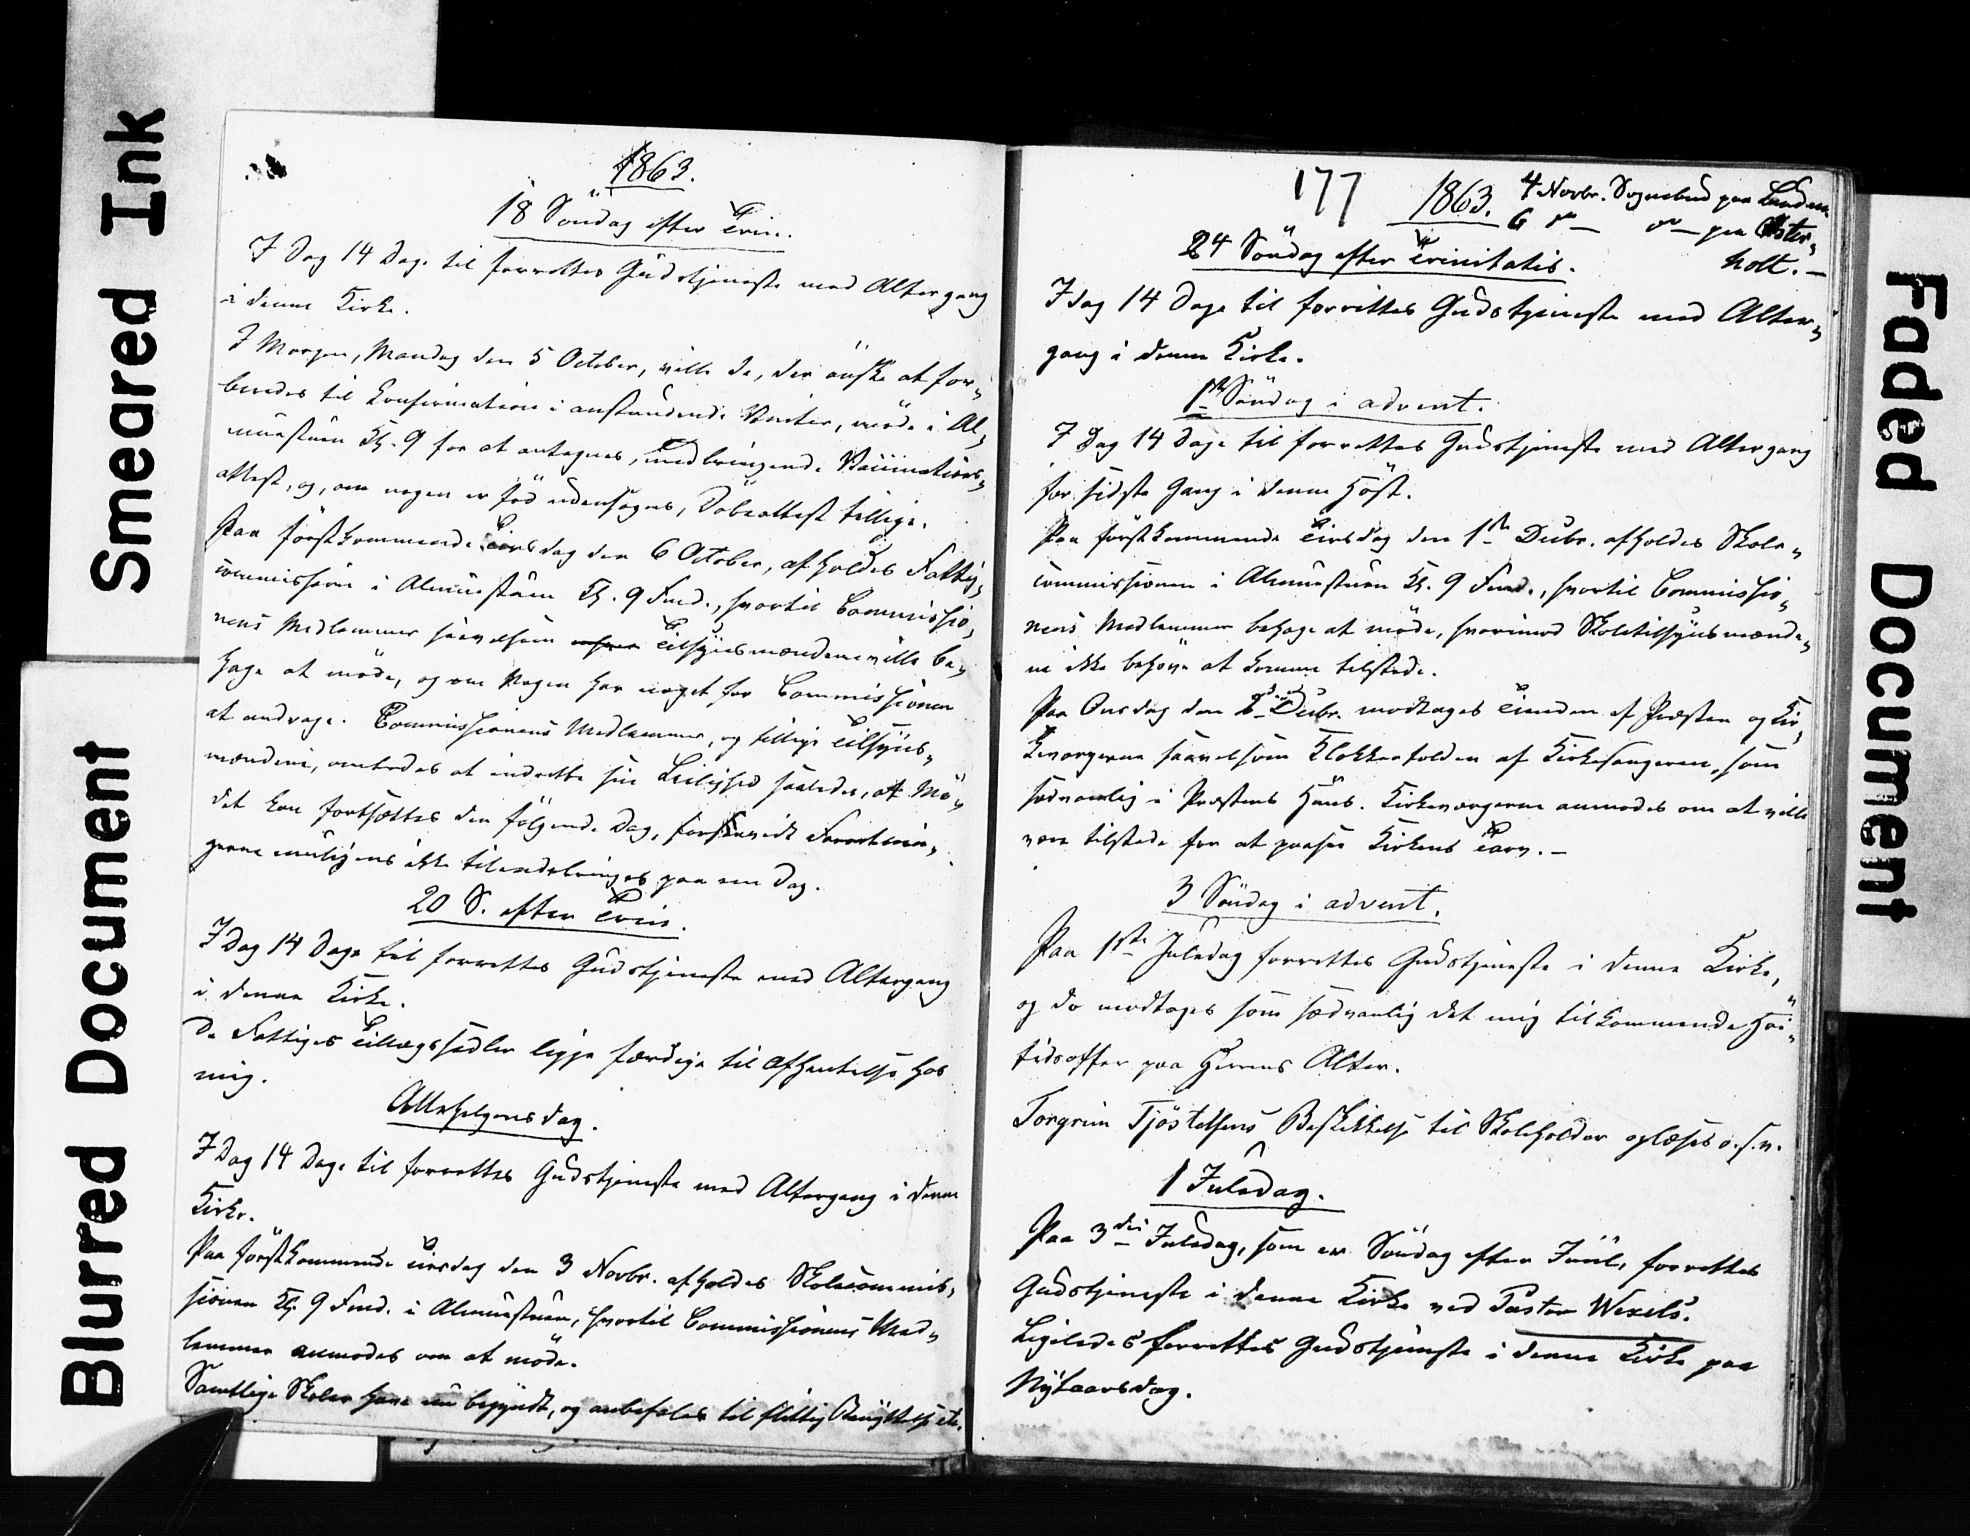 Smeared Ink
Blurred Document
Faded Document
1863.
18 Søndag efter Trin.
I Dag 14 Dage til forrettes Gudstjeneste med Altergang
i denne Kirke.
I Morgen, Mandag den 5 October, ville de, der ønske at for-
beredes til Confirmation i anstundende Vinter, møde i Al-
muestuen Kl. 9 for at antegnes, medbringende Vaccinations-
attest, og, om nogen er fød udensogns, Døbeattest tillige.
Paa førstkommende Tirsdag den 6 October, afholdes Fattig-
commission i Almuestuen Kl. 9 Fmd., hvortil Commissio-
nens Medlemmer saavelsom Tilsynsmændene ville be-
hage at møde, og om Nogen har noget for Commissionen
at andrage. Commissionens Medlemmer, og tillige Tilsyns-
mændene, ombedes at indrette sin Leilighed saaledes, at Mö-
det kan fortsættes den følgende Dag, forsaavidt Forretnin-
gerne muligens ikke tilendebringes paa een Dag.
20 S. efter Trin.
I Dag 14 Dage til forrettes Gudstjeneste med Altergang
i denne Kirke.
De Fattiges Tillægssedler ligge færdige til Afhentelse hos
mig.
Allehelgensdag.
I Dag 14 Dage til forrettes Gudstjeneste med Altergang i denne
Kirke.
Paa førstkommende Tirsdag den 3 Novbr. afholdes Skolecommis-
sionen Kl. 9 Fmd. i Almuestuen, hvortil Commissionens Med-
lemmer anmodes om at møde.
Samtlige Skoler have nu begyndt, og anbefales til flittig Benyttelse etc.
177
1863.
4 Novbr. Sognebud paa
6 d— d— paa Øster-
holt.—
24 Søndag efter Trinitatis.
I dag 14 Dage til forrettes Gudstjeneste med Alter-
gang i denne Kirke.
1ste Søndag i advent.
I Dag 14 Dage til forrettes Gudstjeneste med Altergang
for sidste Gang i denne Høst.
Paa førstkommende Tirsdag den 1ste Decbr. afholdes Skole-
commissionen i Almuestuen Kl. 9 Fmd., hvortil Commissio-
nens Medlemmer behage at møde, hvorimod Skoletilsynsmænde-
ne ikke behøve at komme tilstede.
Paa Onsdag den 2den Decbr. modtages Tienden af Præsten og Kir-
keværgerne saavelsom Klokkertolden af Kirkesangeren, som
sædvanlig i Præstens Huus. Kirkeværgerne anmodes om at ville
være tilstede for at passe Kirkens Tarv.—
3 Søndag i advent.
Paa 1ste Juledag forrettes Gudstjeneste i denne Kirke,
og da modtages som sædvanlig det mig tilkommende Høi-
tidsoffer paa Herrens Alter.
Torgrim Tjøstelsens Beskikkelse til Skoleholder oplæses o.s.v.
1 Juledag.
Paa 3die Juledag, som er Søndag efter Juul, forrettes
Gudstjeneste i denne Kirke ved Pastor Wexels.
Ligeledes forrettes Gudstjeneste i denne Kirke paa
Nytaarsdag.